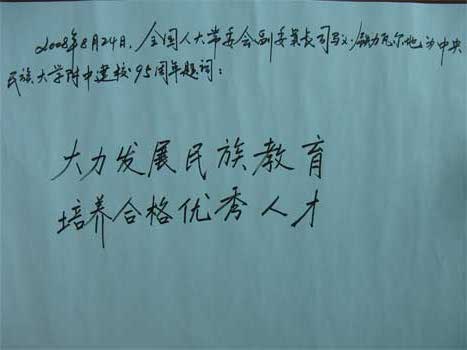 2008年8月24日,全国人大常委会副委员长司马义·铁力瓦尔地为中央
民族大学附中建校95周年题词:
大力发展民族教育
培养合格优秀人才